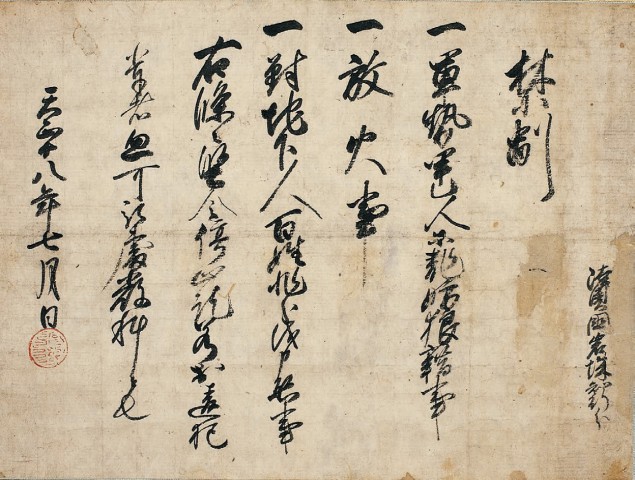 陸奥國岩城
禁制
一軍勢甲乙人等濫妨狼藉事
一放火事
一對地下人百姓非分之儀申懸事
右條々堅令停止訖若於違犯
之輩者忽可被處嚴科者也
天正十八年七月日